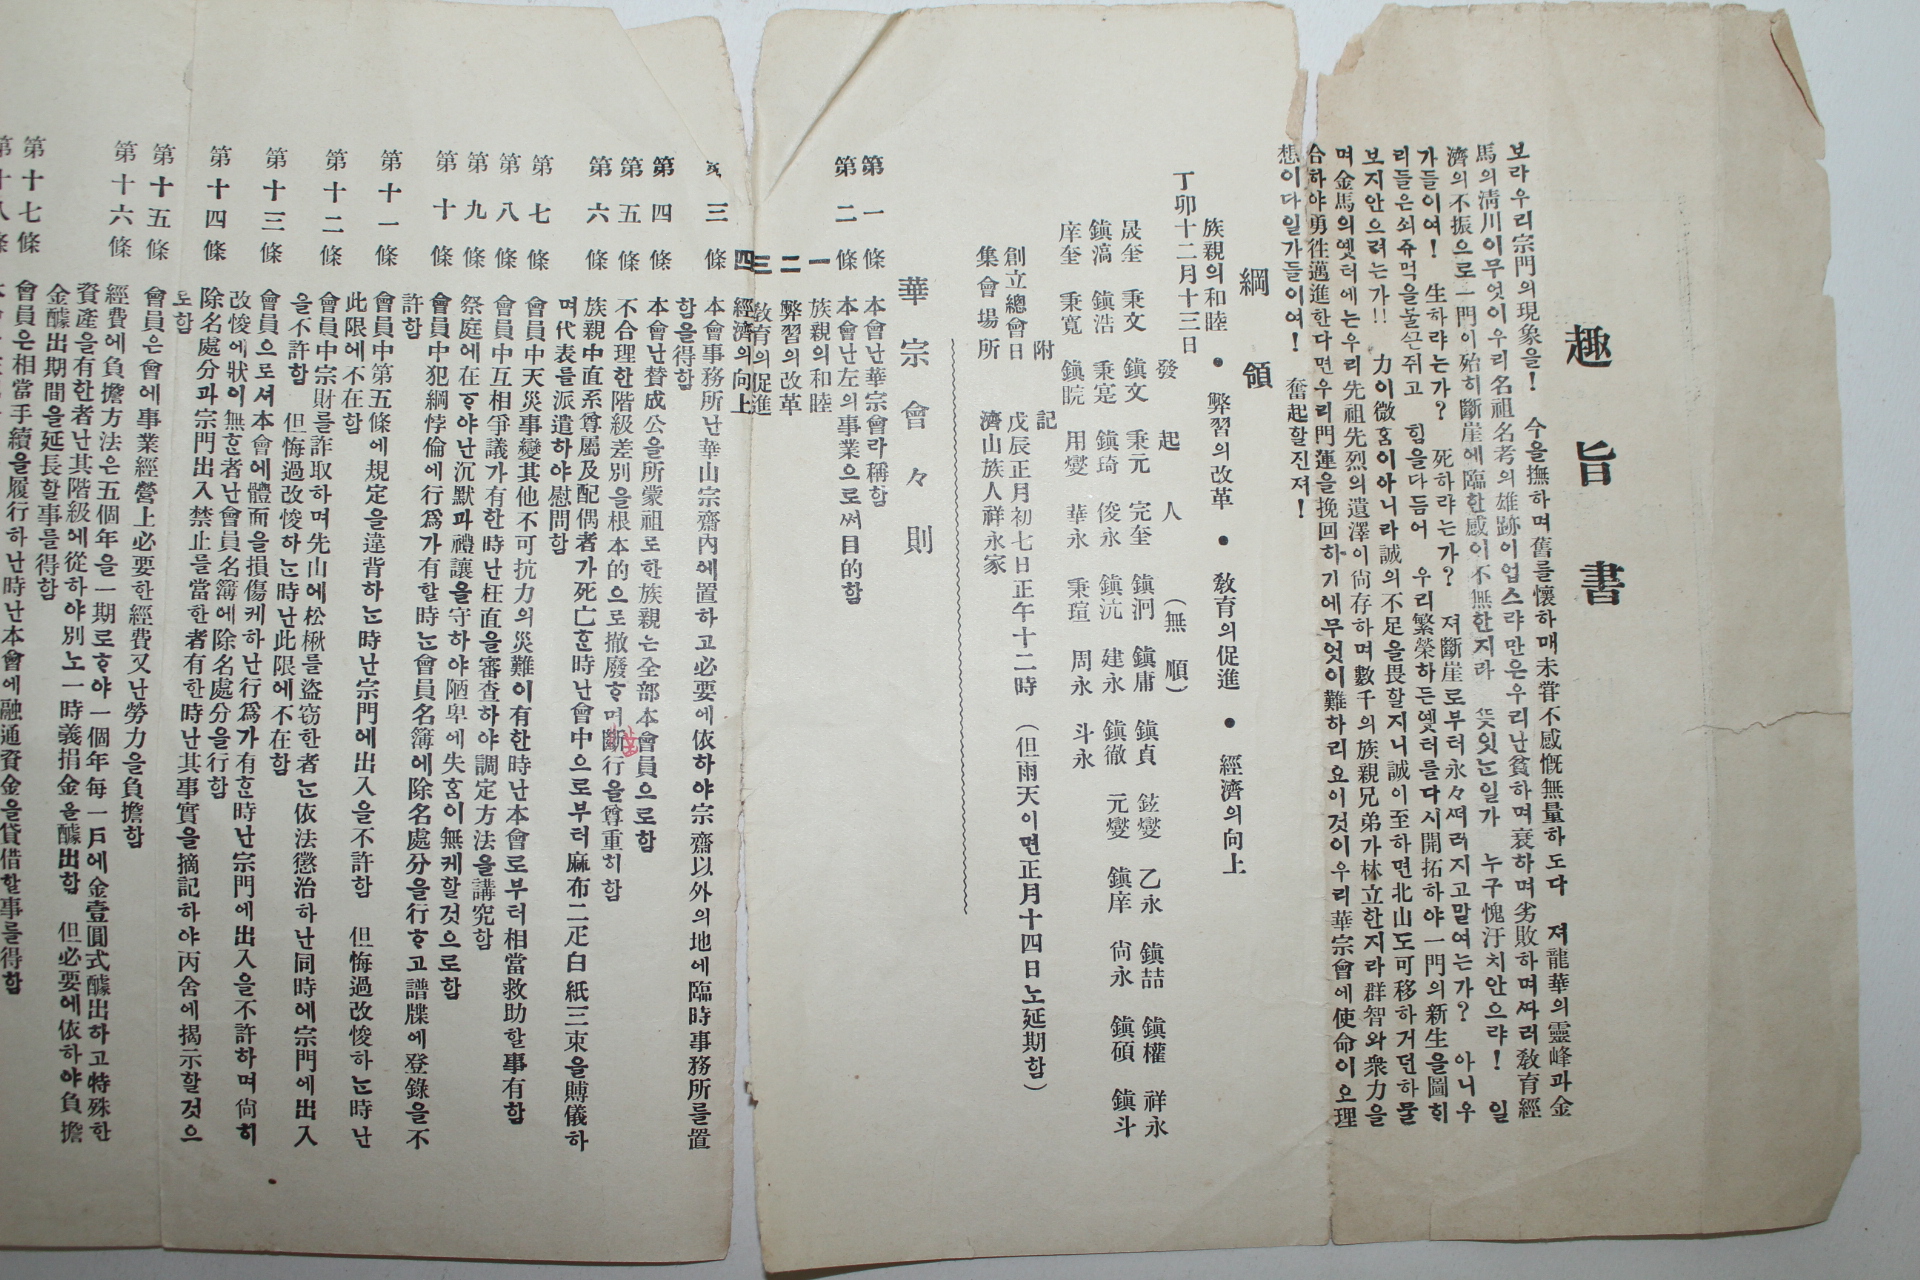 趣旨書
보라우리宗門의現象을! 今을撫하며舊를懷하매未嘗不感慨無量하도다 져龍華의靈峰과金
馬의淸川이무엇이우리名祖名考의雄跡이업스랴만은우리난貧하며衰하며劣敗하며싸러敎育經
濟의不振으로一門이殆히斷崖에臨한感이不無한지라 뜻잇는일가 누구愧汗치안으랴! 일
가들이여! 生하랴는가? 死하랴는가? 져斷崖로부터永々떠러지고말여는가? 아니우
리들은쇠쥬먹을불끈쥐고 힘을다듬어 우리繁榮하든옛터를다시開拓하야一門의新生을圖희
보지안으려는가!! 力이微홈이아니라誠의不足을畏할지니誠이至하면北山도可移하거던하물
며金馬의옛터에는우리先祖先烈의遺澤이尙存하며數千의族親兄弟가林立한지라群智와衆力을
合하야勇徃邁進한다면우리門運을挽回하기에무엇이難하리요이것이우리華宗會에使命이오理
想이다일가들이여! 奮起할진져!
綱領
族親의和睦 ● 弊習의改革 ● 敎育의促進 ● 經濟의向上
丁卯十二月十三日
發起人 (無順)
晟奎 秉文 鎭文 秉元 完奎 鎭泂 鎭庸 鎭貞 鉉燮 乙永 鎭喆 鎭權 祥永
鎭滈 鎭浩 秉寔 鎭琦 俊永 鎭沆 建永 鎭徹 元燮 鎭庠 尙永 鎭碩 鎭斗
庠奎 秉寬 鎭晥 用燮 華永 秉瑄 周永 斗永
附記
創立總會日 戊辰正月初七日正午十二時 (但雨天이면正月十四日노延期함)
集會場所 濟山族人祥永家
華宗會々則
第一條 本會난華宗會라稱함
第二條 本會난左의事業으로써目的함
一 族親의和睦
二 弊習의改革
三 敎育의促進
四 經濟의向上
第三條 本會事務所난華山宗齋內에置하고必要에依하야宗齋以外의地에臨時事務所를置
함을得함
第四條 本會난贊成公을所蒙祖로한族親는全部本會員으로함
第五條 不合理한階級差別을根本的으로撤廢ᄒᆞ며斷行을尊重히함
第六條 族親中直系尊屬及配偶者가死亡ᄒᆞᆫ時난會中으로부터麻布二疋白紙三束을賻儀하
며代表를派遣하야慰問함
第七條 會員中天災事變其他不可抗力의災難이有한時난本會로부터相當救助할事有함
第八條 會員中互相爭議가有한時난枉直을審査하야調定方法을講究함
第九條 祭庭에在ᄒᆞ야난沉默과禮讓을守하야陋卑에失홈이無케할것으로함
第十條 會員中犯綱悖倫에行爲가有할時는會員名簿에除名處分을行ᄒᆞ고譜牒에登錄을不
許함
第十一條 會員中第五條에規定을違背하는時난宗門에出入을不許함 但悔過改悛하는時난
此限에不在함
第十二條 會員中宗財를詐取하며先山에松楸를盜窃한者는依法懲治하난同時에宗門에出入
을不許함 但悔過改悛하는時난此限에不在함
第十三條 會員으로셔本會에體面을損傷케하난行爲가有ᄒᆞᆫ時난宗門에出入을不許하며尙히
改悛에狀이無ᄒᆞᆫ者난會員名簿에除名處分을行함
第十四條 除名處分과宗門出入禁止를當한者有한時난其事實을摘記하야丙舍에揭示할것으
로함
第十五條 會員은會에事業經營上必要한經費又난勞力을負擔함
第十六條 經費에負擔方法은五個年을一期로ᄒᆞ야一個年每一戶에金壹圓式醵出하고特殊한
資產을有한者난其階級에從하야別노一時義捐金을醵出함 但必要에依하야負擔
金醵出期間을延長할事를得함
第十七條 會員은相當手續을履行하난時난本會에融通資金을貸借할事를得함
第十八條